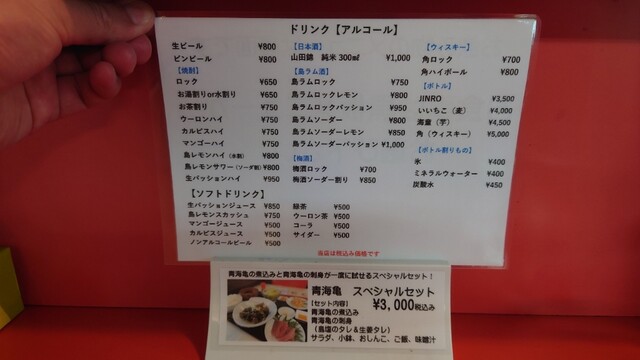 ドリンク【アルコール】
生ビール ¥800
ビンビール ¥800
【焼酎】
ロック ¥650
お湯割りor水割り ¥650
お茶割り ¥750
ウーロンハイ ¥750
カルピスハイ ¥750
マンゴーハイ ¥750
島レモンハイ(水割) ¥800
島レモンサワー(ソーダ割) ¥800
生パッションハイ ¥950
【日本酒】
山田錦 純米 300㎖ ¥1,000
【島ラム酒】
島ラムロック ¥750
島ラムロックレモン ¥800
島ラムロックパッション ¥950
島ラムソーダー ¥800
島ラムソーダーレモン ¥850
島ラムソーダーパッション ¥1,000
【梅酒】
梅酒ロック ¥700
梅酒ソーダー割り ¥850
【ウィスキー】
角ロック ¥700
角ハイボール ¥800
【ボトル】
JINRO ¥3,500
いいちこ(麦) ¥4,000
海童(芋) ¥4,500
角(ウィスキー) ¥5,000
【ボトル割りもの】
氷 ¥400
ミネラルウォーター ¥400
炭酸水 ¥450
【ソフトドリンク】
生パッションジュース ¥850
島レモンスカッシュ ¥750
マンゴージュース ¥500
カルピスジュース ¥500
ノンアルコールビール ¥500
緑茶 ¥500
ウーロン茶 ¥500
コーラ ¥500
サイダー ¥500
当店は税込み価格です
青海亀の煮込みと青海亀の刺身が一度に試せるスペシャルセット!
青海亀 スペシャルセット
【セット内容】 ¥3,000税込み
青海亀の煮込み
青海亀の刺身
(島塩のタレ&生姜タレ)
サラダ、小鉢、おしんこ、ご飯、味噌汁